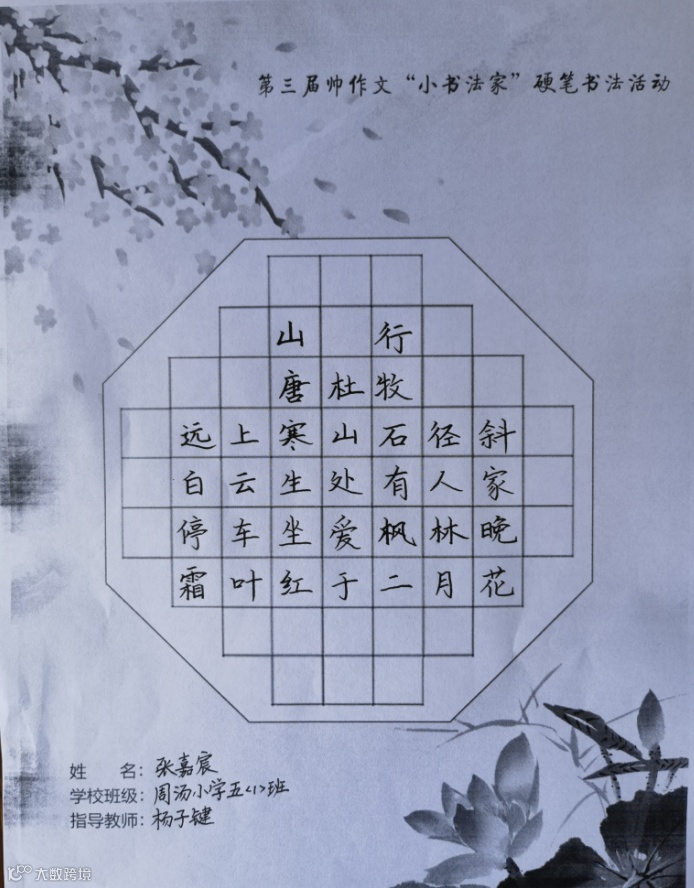 第三届帅作文“小书法家”硬笔书法活动
山 行
唐杜牧
远上寒山石径斜
白云生处有人家
停车坐爱枫林晚
霜叶红于二月花
姓 名：张嘉宸
学校班级：周汤小学五<1>班
指导教师：杨子键
大数跨境